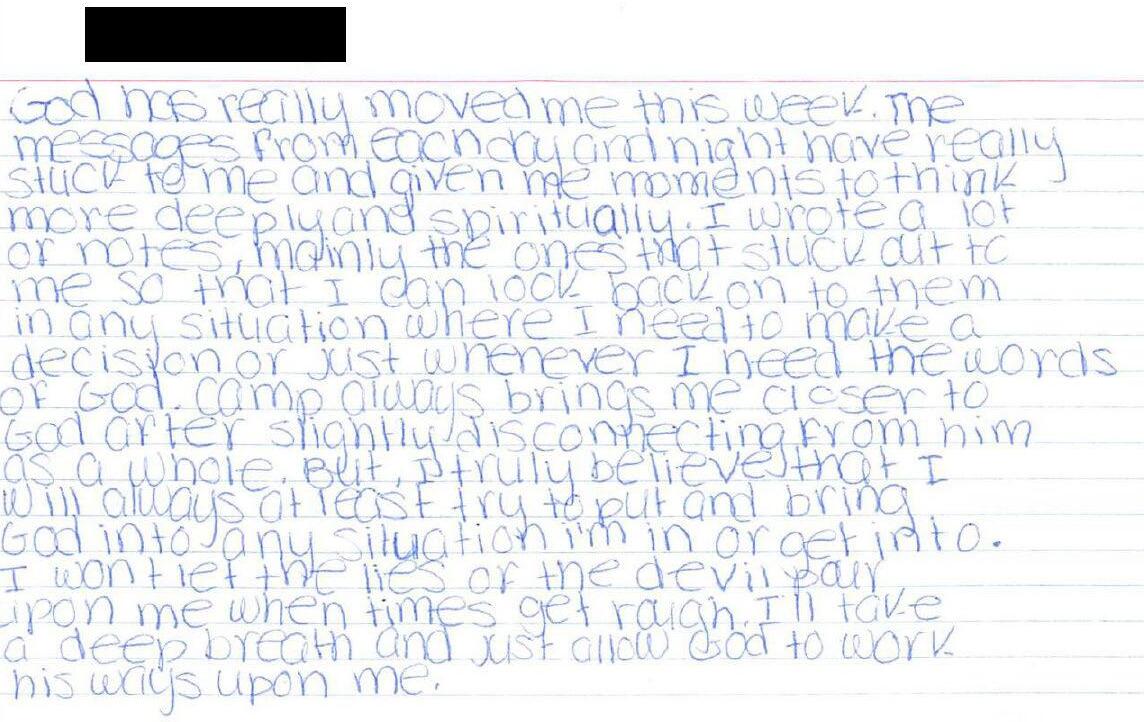 God has really moved me this week. The
messages from each day and night have really
stuck to me and given me moments to think
more deeply and spiritually. I wrote a lot
of notes, mainly the ones that stuck out to
me so that I can look back on to them
in any situation where I need to make a
decision or just whenever I need the words
of God. Camp always brings me closer to
God after slightly disconnecting from him
as a whole. But, I truly believe that I
will always at least try to put and bring
God into any situation i'm in or get into.
I wont let the lies of the devil pour
upon me when times get rough. I'll take
a deep breath and just allow God to work
his ways upon me.